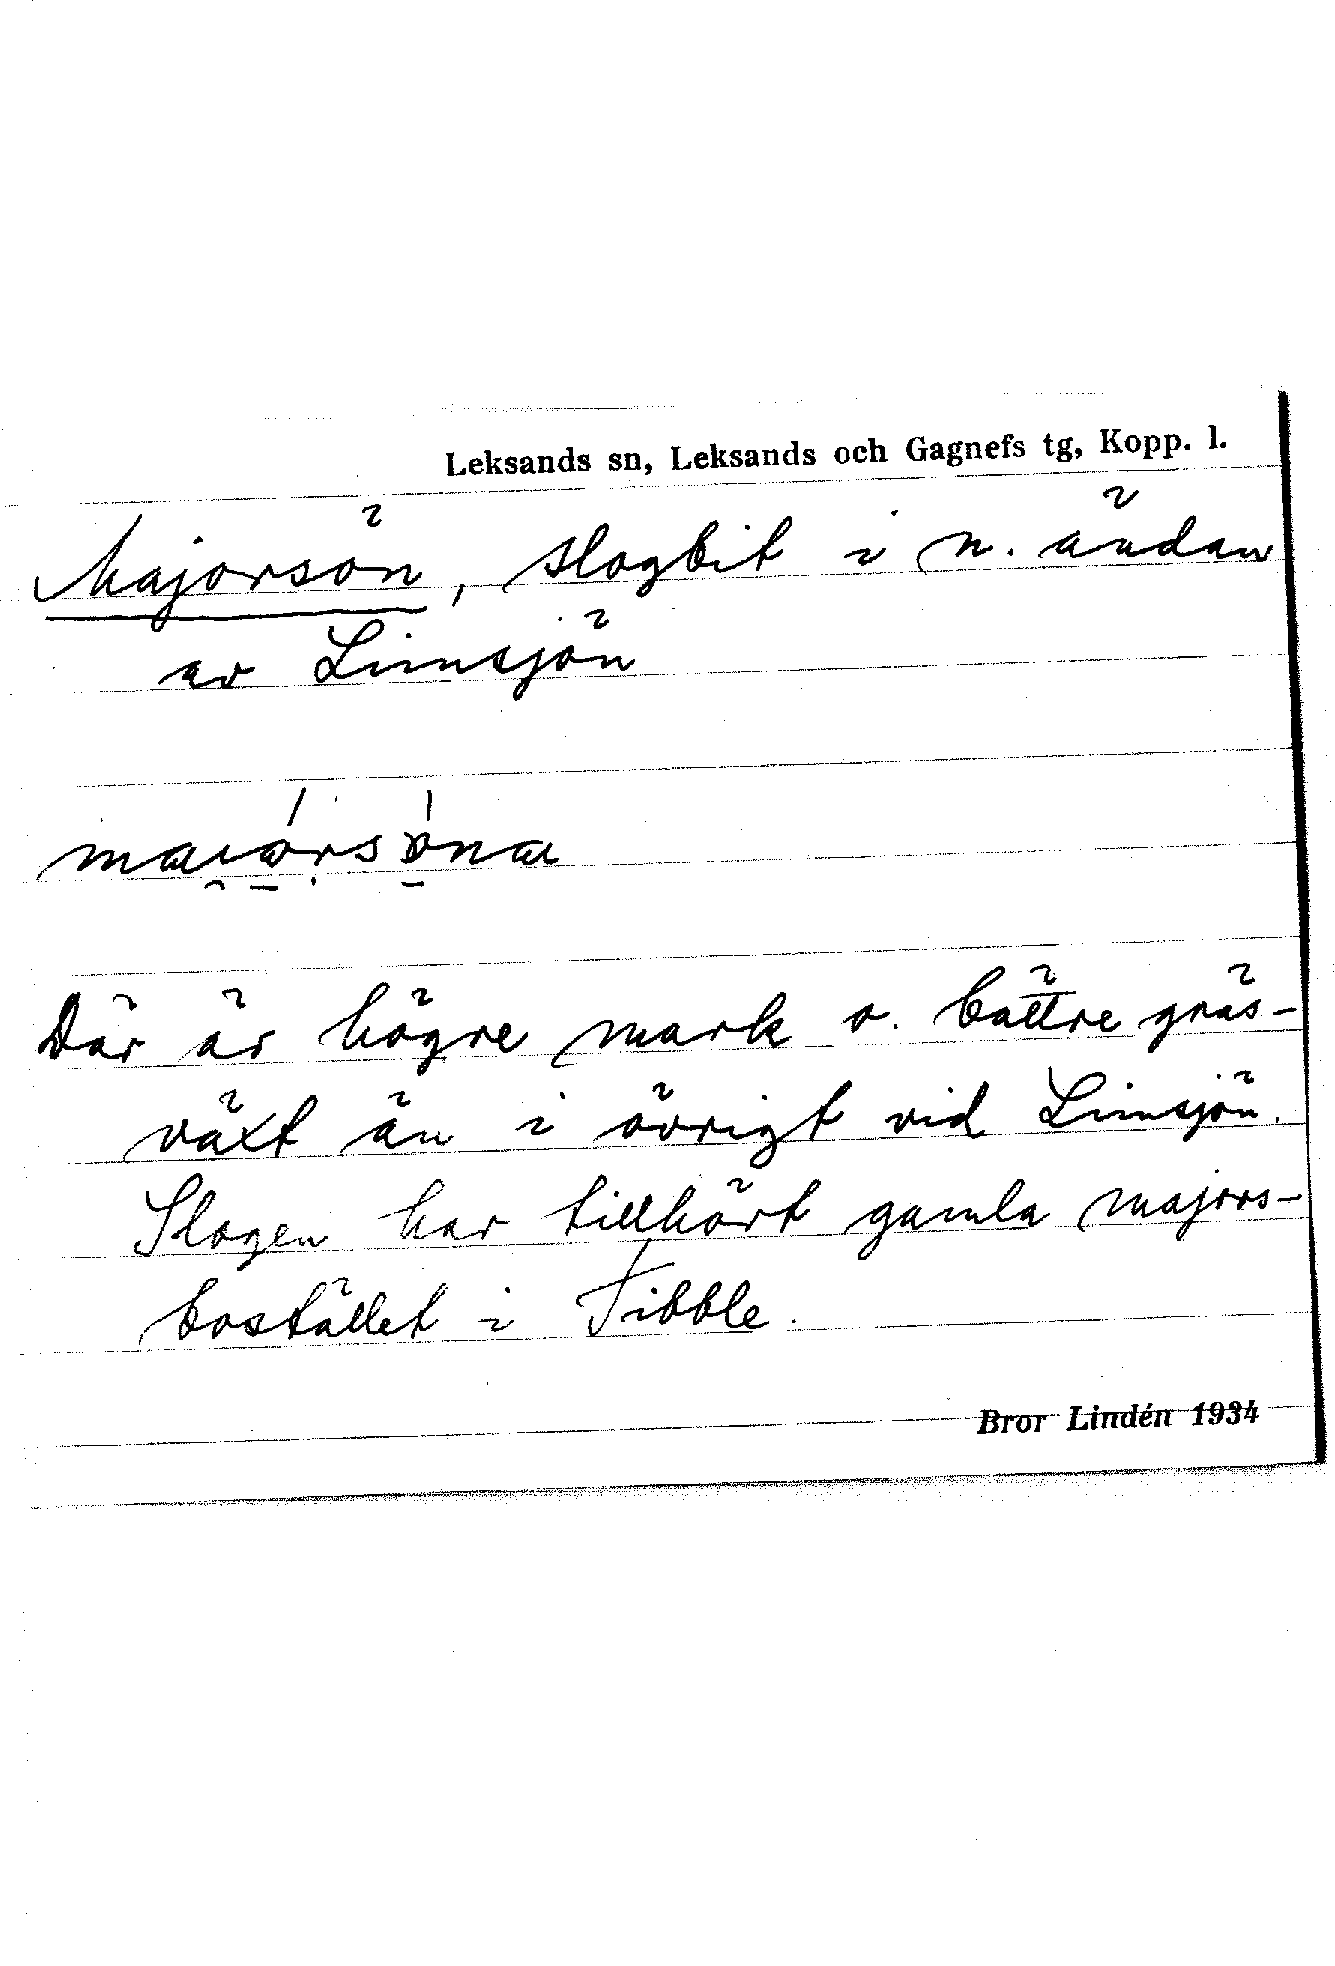 Leksands sn, Leksands och Gagnefs tg, Kopp. l.
Majorsön, slogbit i n. ändan
av Limsjön
Där är högre mark o. bättre gräs-
växt än i övrigt vid Limsjön.
Slogen har tillhört gamla majors-
bostället i Tibble.
Bror Lindén 1934